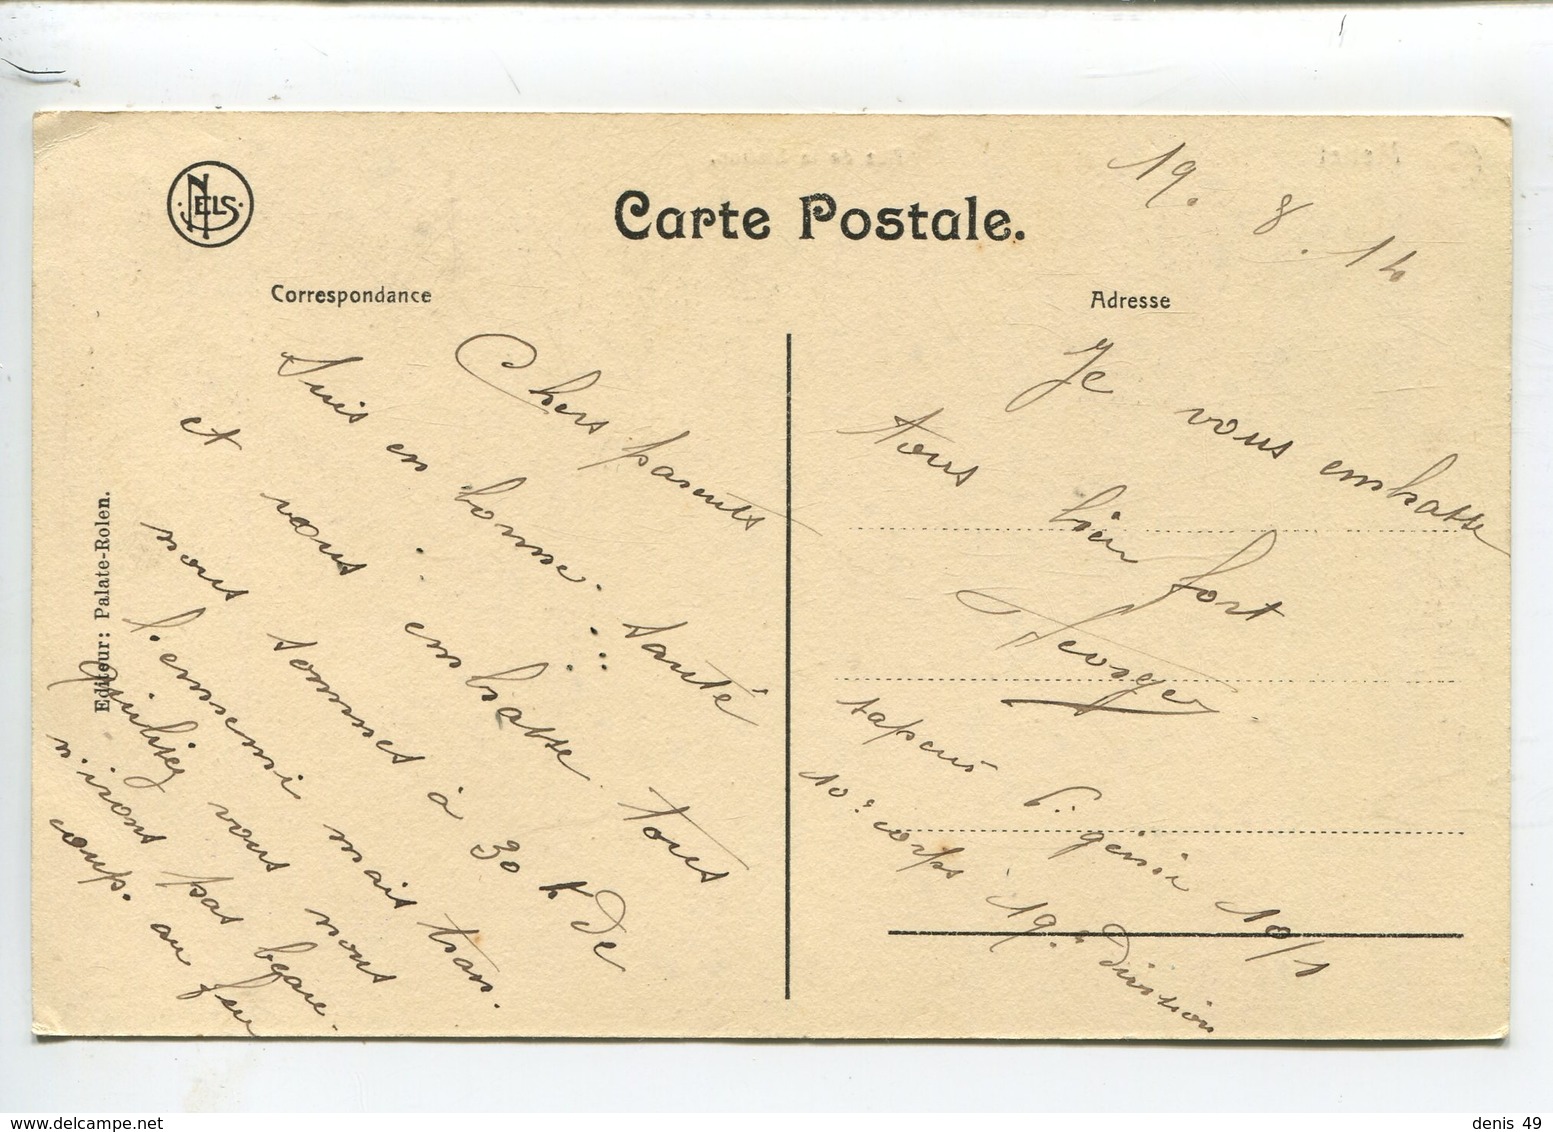 NELS
Carte Postale.
19. 8. 14
Correspondance
Adresse
Editeur: Palate-Rolen.
Chers parents
Suis en bonne santé
et vous embrasse tous
nous sommes à 30 k De
l'ennemi mais tran.
quilisez vous nous
n'irons pas beau-
coup. au feu
Je vous embrasse
tous bien fort
Georges
sapeur génie 10/1
10e corps 19e Division
denis 49